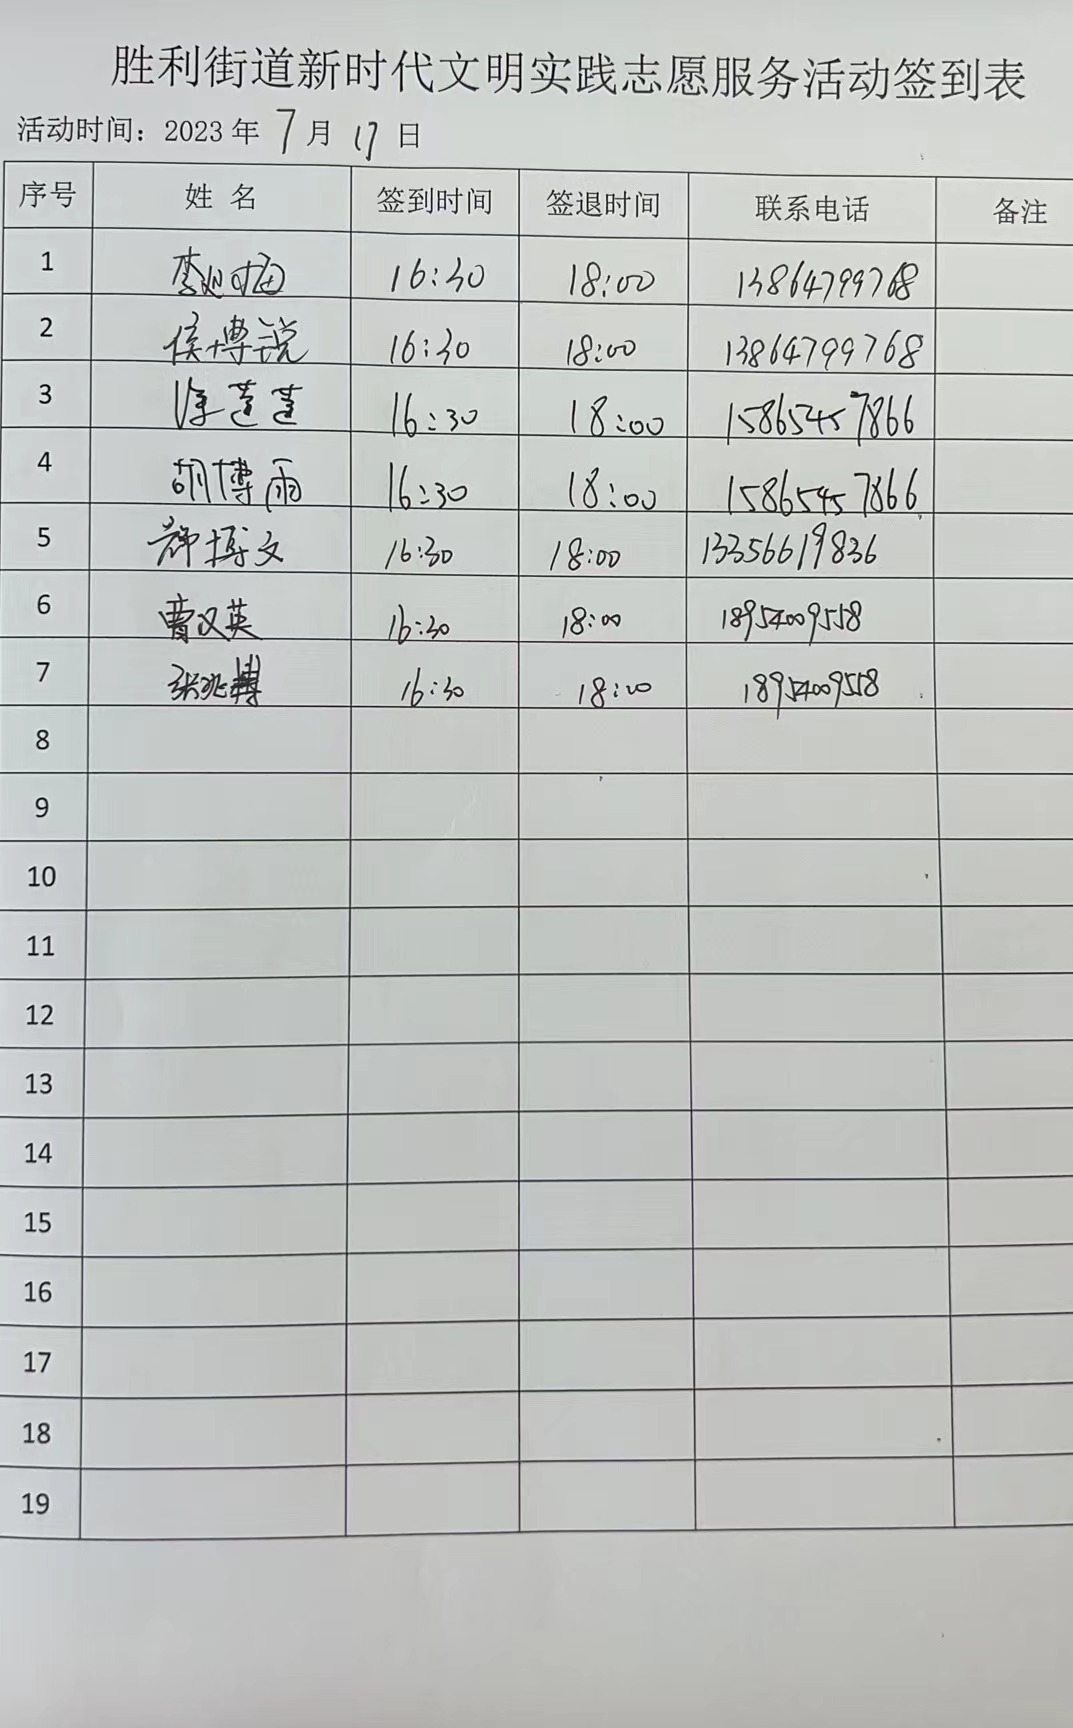 胜利街道新时代文明实践志愿服务活动签到表
活动时间：2023 年 7 月 17 日
序号 姓 名 签到时间 签退时间 联系电话 备注
1 16:30 18:00 13864799768
2 侯博锐 16:30 18:00 13864799768
3 徐莲莲 16:30 18:00 15865457866
4 胡博雨 16:30 18:00 15865457866
5 薛博文 16:30 18:00 13356619836
6 曹汉英 16:30 18:00 18954009558
7 张兆博 16:30 18:00 18954009558
8
9
10
11
12
13
14
15
16
17
18
19